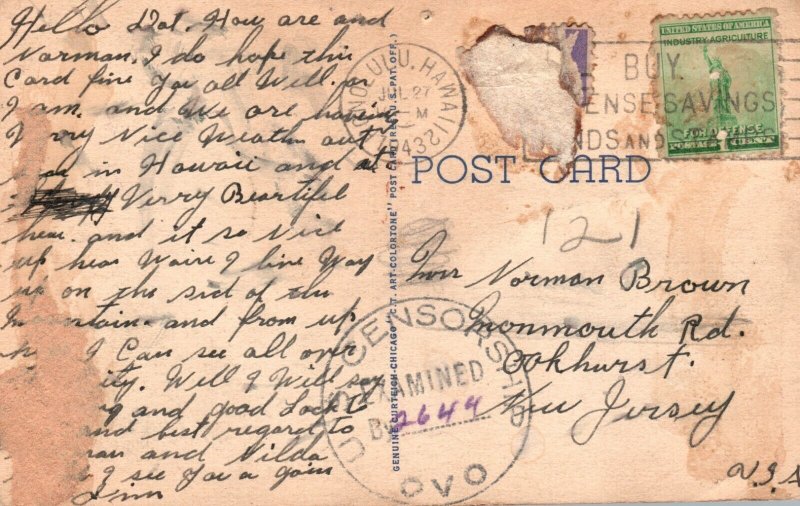 Hello Dot. How are and
Norman. I do hope this
Card fine You all Well. as
I am. and We are having
Verry Nice Weath out
in Hawaii and at
Verry Beartifel
hear. and it so Nice
up hear Waire I live Way
up on the sid of the
Mountain. and from up
I Can see all over
City. Well I Will say
and good Lock to
and best regard to
and Nilda
I see You a gain
Jim
GENUINE CURTEICH-CHICAGO "C.T. ART-COLORTONE" POST CARD (REG. U.S. PAT. OFF.)
HONOLULU, HAWAII
JUL 27
M
1943
BUY
DEFENSE SAVINGS
BONDS AND STAMPS
UNITED STATES OF AMERICA
INDUSTRY-AGRICULTURE
FOR DEFENSE
POSTAGE 1 CENT
POST CARD
121
Norman Brown
Monmouth Rd.
Oakhurst.
New Jersey
U.S.A
U.S. CENSORSHIP
EXAMINED
By 2644
OVO